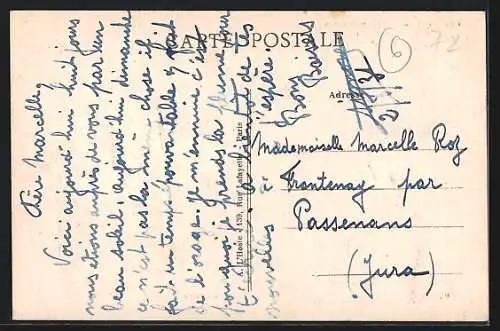 CARTE POSTALE
Adresse
6
72
Chère Marcelle
Voici aujourd'hui huit jours
nous étions auprès de vous par un
beau soleil, aujourd'hui dimanche
ce n'est pas la même chose il
fait un temps épouvantable il fait
de l'orage. Je m'ennuie c'est
pourquoi je prends la plume pour
à bientôt de tes
nouvelles
j'espère
Bons Baisers
A. L'Hoste, 139, Rue Lafayette, Paris
Mademoiselle Marcelle Roz
à Frontenay par
Passenans
(Jura)